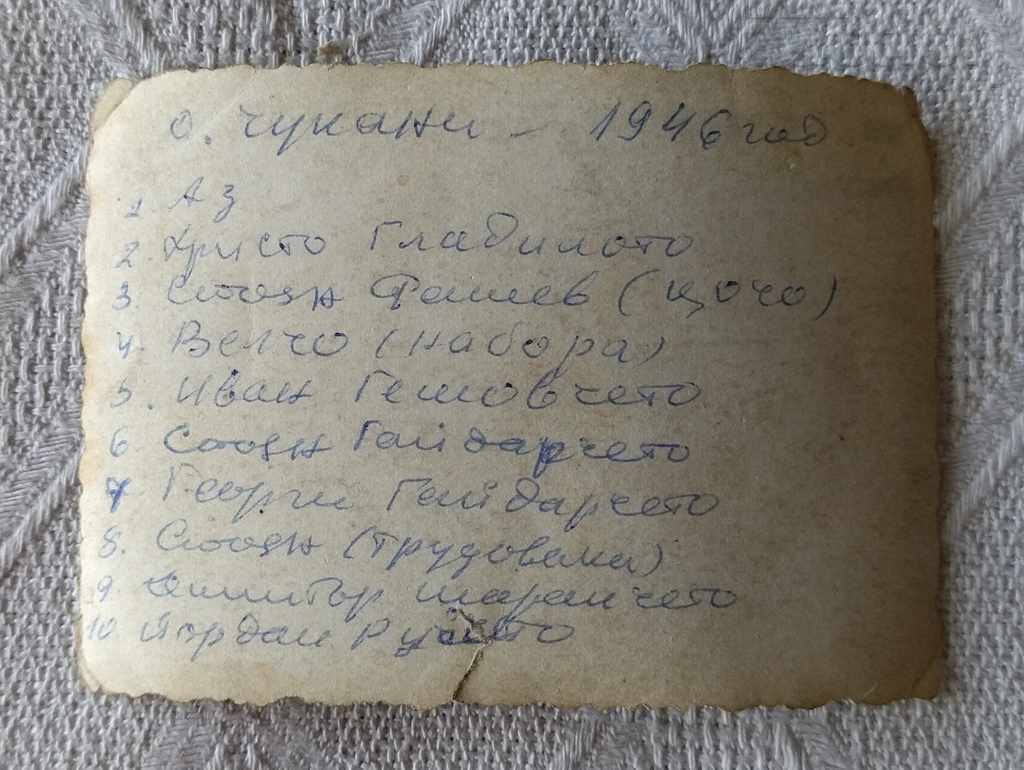 о. Чукани - 1946 год
1. Аз
2. Христо Гладилото
3. Стоян Фашев (Цочо)
4. Велчо (набора)
5. Иван Гешовчето
6 Стоян Гайдарчето
7 Георги Гайдарчето
8. Стоян (трудовака)
9 Димитър шаранчето
10 Йордан